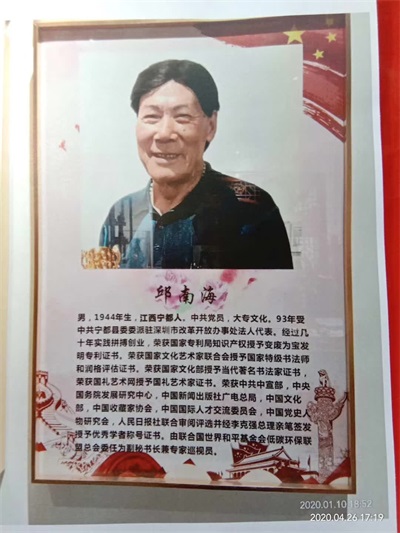 邱南海
男，1944年生，江西宁都人。中共党员，大专文化。93年受
中共宁都县委委派驻深圳市改革开放办事处法人代表。经过几
十年实践拼搏创业，荣获国家专利局知识产权部授予变废为宝发
明专利证书。荣获国家文化艺术家联合会授予国家特级书法师
和润格评估证书。荣获国家文化部授予当代著名书法家证书，
荣获国礼艺术网授予国礼艺术家证书。荣获中共中宣部，中央
国务院发展研究中心，中国新闻出版社广电总局，中国文化
部，中国收藏家协会，中国国际人才交流委员会，中国党史人
物研究会，人民日报社联合审阅评选并经李克强总理亲笔签发
授予优秀学者称号证书。由联合国世界和平基金会低碳环保联
盟总会委任为副秘书长兼专家巡视员。
2020.01.10 18:52
2020.04.26 17:19